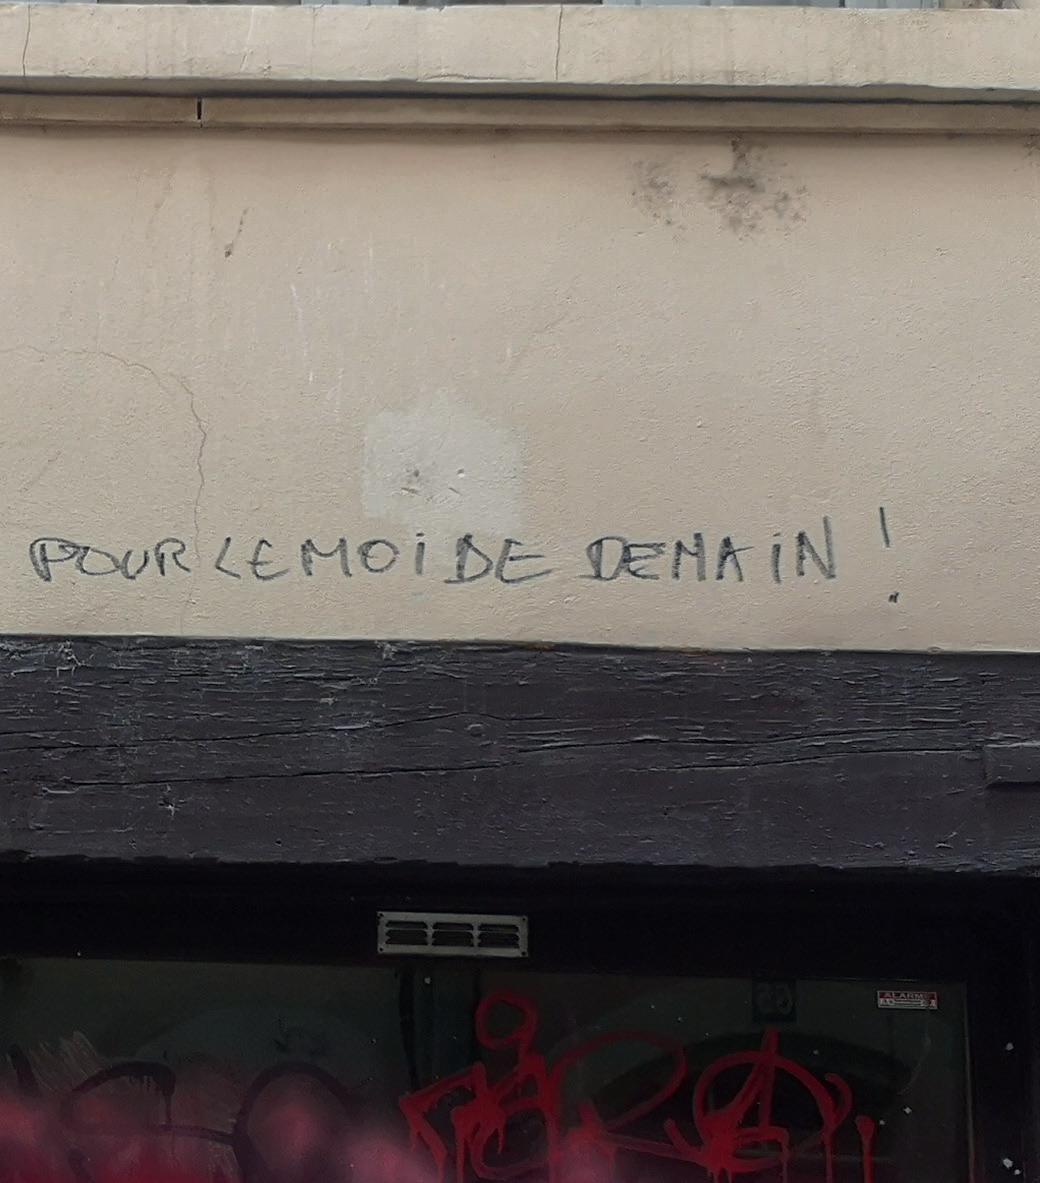 POUR LE MOi DE DEMAiN !
ALARME